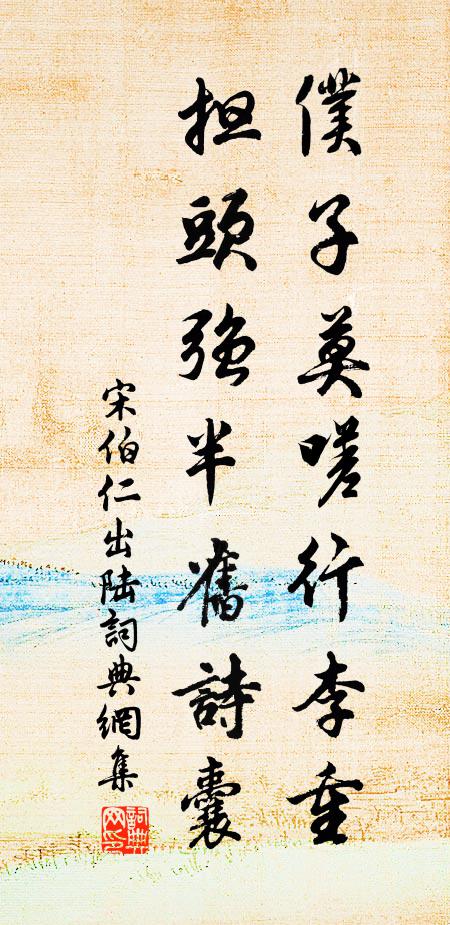 僕子莫嗟行李重
担頭強半舊詩囊
宋伯仁出陆詞典網集
詞典网印